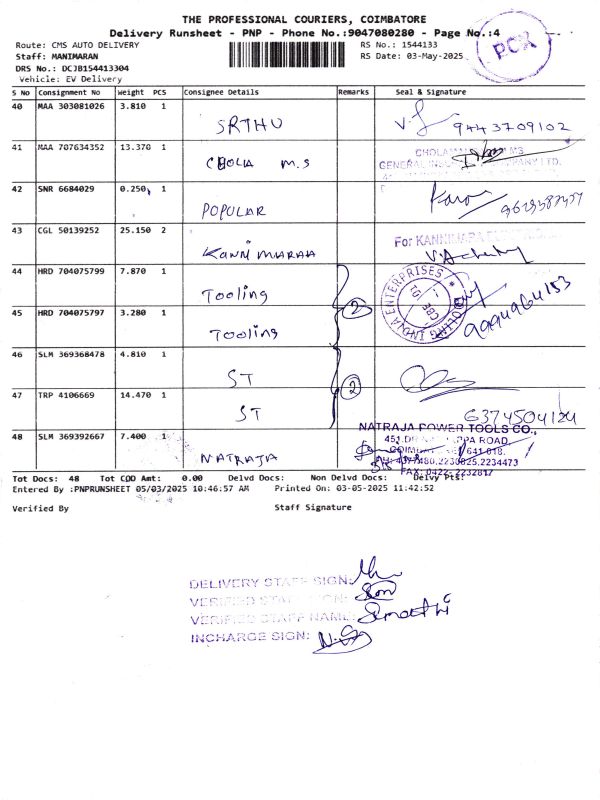 THE PROFESSIONAL COURIERS, COIMBATORE
Delivery Runsheet - PNP - Phone No.:9047080280 - Page No.:4
PCX
Route: CMS AUTO DELIVERY RS No.: 1544133
Staff: MANIMARAN RS Date: 03-May-2025
DRS No.: DCJB154413304
Vehicle: EV Delivery
S No Consignment No Weight PCS Consignee Details Remarks Seal & Signature
40 MAA 303081026 3.810 1 SRTHU 9443709102
41 MAA 707634352 13.370 1 CHOLA M.S
GENERAL LTD.
42 SNR 6684029 0.250 1 POPULAR
43 CGL 50139252 25.150 2
For KANNIMARA
44 HRD 704075799 7.870 1 Tooling
45 HRD 704075797 3.280 1 Tooling 2
TOOLING INDIA ENTERPRISES
46 SLM 369368478 4.810 1 ST
47 TRP 4106669 14.470 1 ST 2
NATRAJA POWER TOOLS CO.,
48 SLM 369392667 7.400 1 NATRAJA
ROAD,
641 018.
2230825,2234473
FAX: 0422-2232817
Tot Docs: 48 Tot COD Amt: 0.00 Delvd Docs: Non Delvd Docs: Delvy Pts:
Entered By :PNPRUNSHEET 05/03/2025 10:46:57 AM Printed On: 03-05-2025 11:42:52
Verified By Staff Signature
DELIVERY STAFF SIGN:
VERIFIED STAFF SIGN:
VERIFIED STAFF NAME:
INCHARGE SIGN: